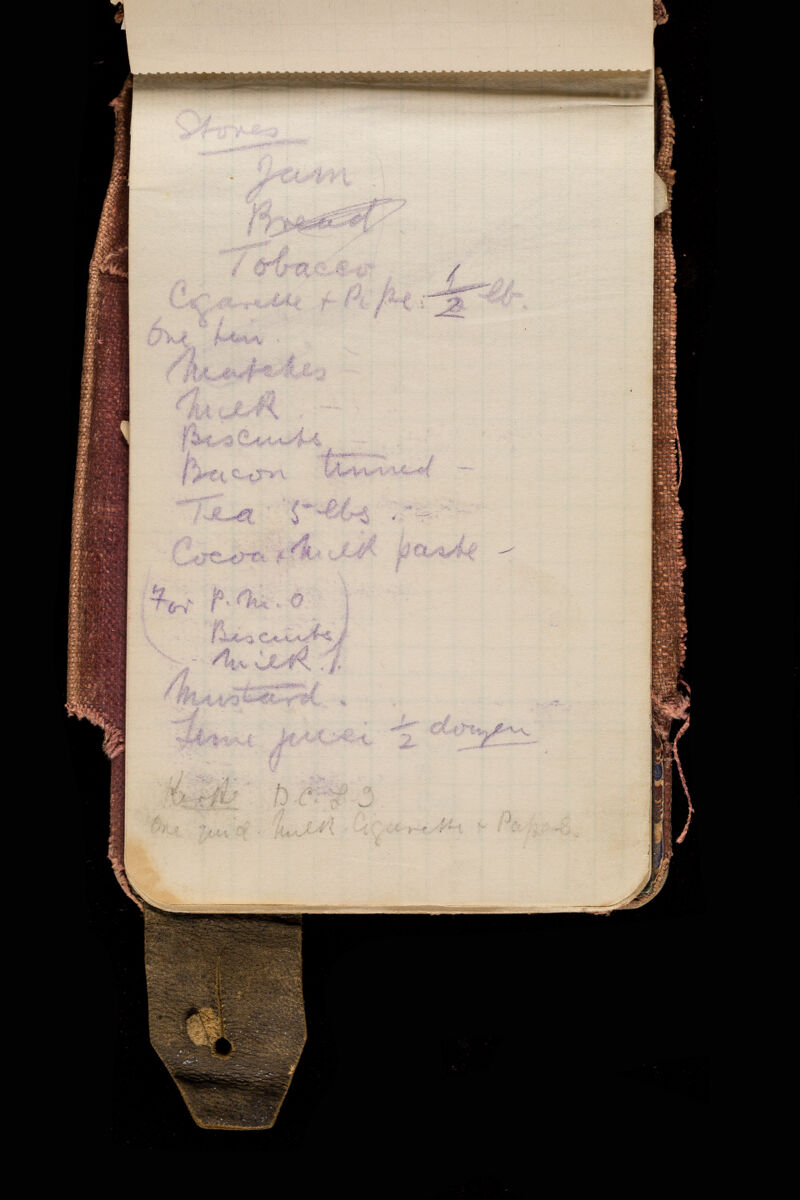 Stores
Jam
Bread
Tobacco
Cigarette + Pipe. 1/2 lb.
One tin.
Matches -
Milk -
Biscuits -
Bacon tinned -
Tea 5 lbs. -
Cocoa + Milk paste -
(For P.M.O
Biscuits
Milk.)
Mustard.
Lime juice 1/2 dozen
D.C.
One Milk Cigarette + Papers.